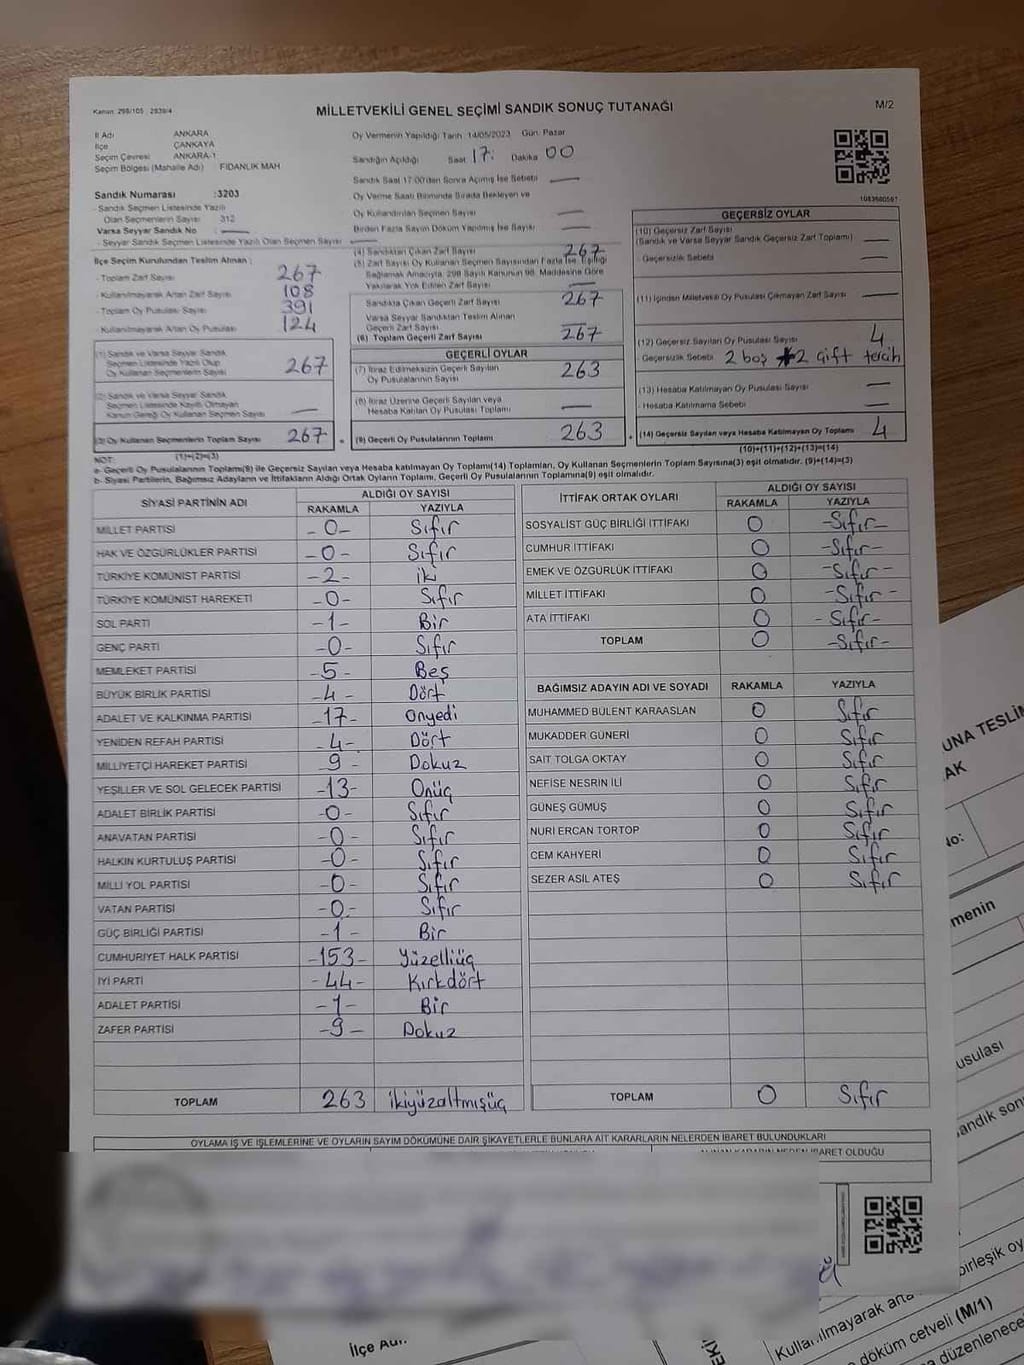 Kanun: 298/105 2839/4
MİLLETVEKİLİ GENEL SEÇİMİ SANDIK SONUÇ TUTANAĞI
M/2
İl Adı ANKARA
İlçe ÇANKAYA
Seçim Çevresi ANKARA-1
Seçim Bölgesi (Mahalle Adı) FİDANLIK MAH
Oy Vermenin Yapıldığı Tarih: 14/05/2023 Gün: Pazar
Sandığın Açıldığı Saat 17: Dakika 00
Sandık Saat 17:00'den Sonra Açılmış İse Sebebi
Oy Verme Saati Bitiminde Sırada Bekleyen ve
Oy Kullandırılan Seçmen Sayısı
Birden Fazla Sayım Döküm Yapılmış İse Sayısı
Sandık Numarası :3203
- Sandık Seçmen Listesinde Yazılı
Olan Seçmenlerin Sayısı 312
Varsa Seyyar Sandık No
- Seyyar Sandık Seçmen Listesinde Yazılı Olan Seçmen Sayısı
İlçe Seçim Kurulundan Teslim Alınan :
- Toplam Zarf Sayısı 267
- Kullanılmayarak Artan Zarf Sayısı 108
- Toplam Oy Pusulası Sayısı 391
- Kullanılmayarak Artan Oy Pusulası 124
(1) Sandık ve Varsa Seyyar Sandık
Seçmen Listesinde Yazılı Olup
Oy Kullanan Seçmenlerin Sayısı 267
(2) Sandık ve Varsa Seyyar Sandık
Seçmen Listesinde Kayıtlı Olmayan
Kanun Gereği Oy Kullanan Seçmen Sayısı
(3) Oy Kullanan Seçmenlerin Toplam Sayısı 267
(1)+(2)=(3)
(4) Sandıktan Çıkan Zarf Sayısı 267
(5) Zarf Sayısı Oy Kullanan Seçmen Sayısından Fazla İse, Eşitliği
Sağlamak Amacıyla, 298 Sayılı Kanunun 98. Maddesine Göre
Yakılarak Yok Edilen Zarf Sayısı
Sandıkta Çıkan Geçerli Zarf Sayısı 267
Varsa Seyyar Sandıktan Teslim Alınan
Geçerli Zarf Sayısı
(6) Toplam Geçerli Zarf Sayısı 267
GEÇERLİ OYLAR
(7) İtiraz Edilmeksizin Geçerli Sayılan
Oy Pusulalarının Sayısı 263
(8) İtiraz Üzerine Geçerli Sayılan veya
Hesaba Katılan Oy Pusulası Toplamı
(9) Geçerli Oy Pusulalarının Toplamı 263
1083680597
GEÇERSİZ OYLAR
(10) Geçersiz Zarf Sayısı
(Sandık ve Varsa Seyyar Sandık Geçersiz Zarf Toplamı)
- Geçersizlik Sebebi
(11) İçinden Milletvekili Oy Pusulası Çıkmayan Zarf Sayısı
(12) Geçersiz Sayılan Oy Pusulası Sayısı 4
- Geçersizlik Sebebi 2 boş 2 çift tercih
(13) Hesaba Katılmayan Oy Pusulası Sayısı
- Hesaba Katılmama Sebebi
(14) Geçersiz Sayılan veya Hesaba Katılmayan Oy Toplamı 4
(10)+(11)+(12)+(13)=(14)
NOT:
a- Geçerli Oy Pusulalarının Toplamı(9) ile Geçersiz Sayılan veya Hesaba katılmayan Oy Toplamı(14) Toplamları, Oy Kullanan Seçmenlerin Toplam Sayısına(3) eşit olmalıdır. (9)+(14)=(3)
b- Siyasi Partilerin, Bağımsız Adayların ve İttifakların Aldığı Ortak Oyların Toplamı, Geçerli Oy Pusulalarının Toplamına(9) eşit olmalıdır.
SİYASİ PARTİNİN ADI ALDIĞI OY SAYISI
RAKAMLA YAZIYLA
MİLLET PARTİSİ -0- Sıfır
HAK VE ÖZGÜRLÜKLER PARTİSİ -0- Sıfır
TÜRKİYE KOMÜNİST PARTİSİ -2- iki
TÜRKİYE KOMÜNİST HAREKETİ -0- Sıfır
SOL PARTİ -1- Bir
GENÇ PARTİ -0- Sıfır
MEMLEKET PARTİSİ -5- Beş
BÜYÜK BİRLİK PARTİSİ -4- Dört
ADALET VE KALKINMA PARTİSİ -17- Onyedi
YENİDEN REFAH PARTİSİ -4- Dört
MİLLİYETÇİ HAREKET PARTİSİ -9- Dokuz
YEŞİLLER VE SOL GELECEK PARTİSİ -13- Onüç
ADALET BİRLİK PARTİSİ -0- Sıfır
ANAVATAN PARTİSİ -0- Sıfır
HALKIN KURTULUŞ PARTİSİ -0- Sıfır
MİLLİ YOL PARTİSİ -0- Sıfır
VATAN PARTİSİ -0- Sıfır
GÜÇ BİRLİĞİ PARTİSİ -1- Bir
CUMHURİYET HALK PARTİSİ -153- Yüzelliüç
İYİ PARTİ -44- Kırkdört
ADALET PARTİSİ -1- Bir
ZAFER PARTİSİ -9- Dokuz
TOPLAM 263 ikiyüzaltmışüç
İTTİFAK ORTAK OYLARI ALDIĞI OY SAYISI
RAKAMLA YAZIYLA
SOSYALİST GÜÇ BİRLİĞİ İTTİFAKI 0 -Sıfır-
CUMHUR İTTİFAKI 0 -Sıfır-
EMEK VE ÖZGÜRLÜK İTTİFAKI 0 -Sıfır-
MİLLET İTTİFAKI 0 -Sıfır-
ATA İTTİFAKI 0 -Sıfır-
TOPLAM 0 -Sıfır-
BAĞIMSIZ ADAYIN ADI VE SOYADI RAKAMLA YAZIYLA
MUHAMMED BÜLENT KARAASLAN 0 Sıfır
MUKADDER GÜNERİ 0 Sıfır
SAİT TOLGA OKTAY 0 Sıfır
NEFİSE NESRİN İLİ 0 Sıfır
GÜNEŞ GÜMÜŞ 0 Sıfır
NURİ ERCAN TORTOP 0 Sıfır
CEM KAHYERİ 0 Sıfır
SEZER ASİL ATEŞ 0 Sıfır
TOPLAM 0 Sıfır
OYLAMA İŞ VE İŞLEMLERİNE VE OYLARIN SAYIM DÖKÜMÜNE DAİR ŞİKAYETLERLE BUNLARA AİT KARARLARIN NELERDEN İBARET BULUNDUKLARI
ALINAN KARARIN NEDEN İBARET OLDUĞU
UNA TESLİM
AK
No:
menin
usulası
andık son
birleşik oy
Kullanılmayarak arta
döküm cetveli (M/1)
a düzenlenece
İlçe Adı